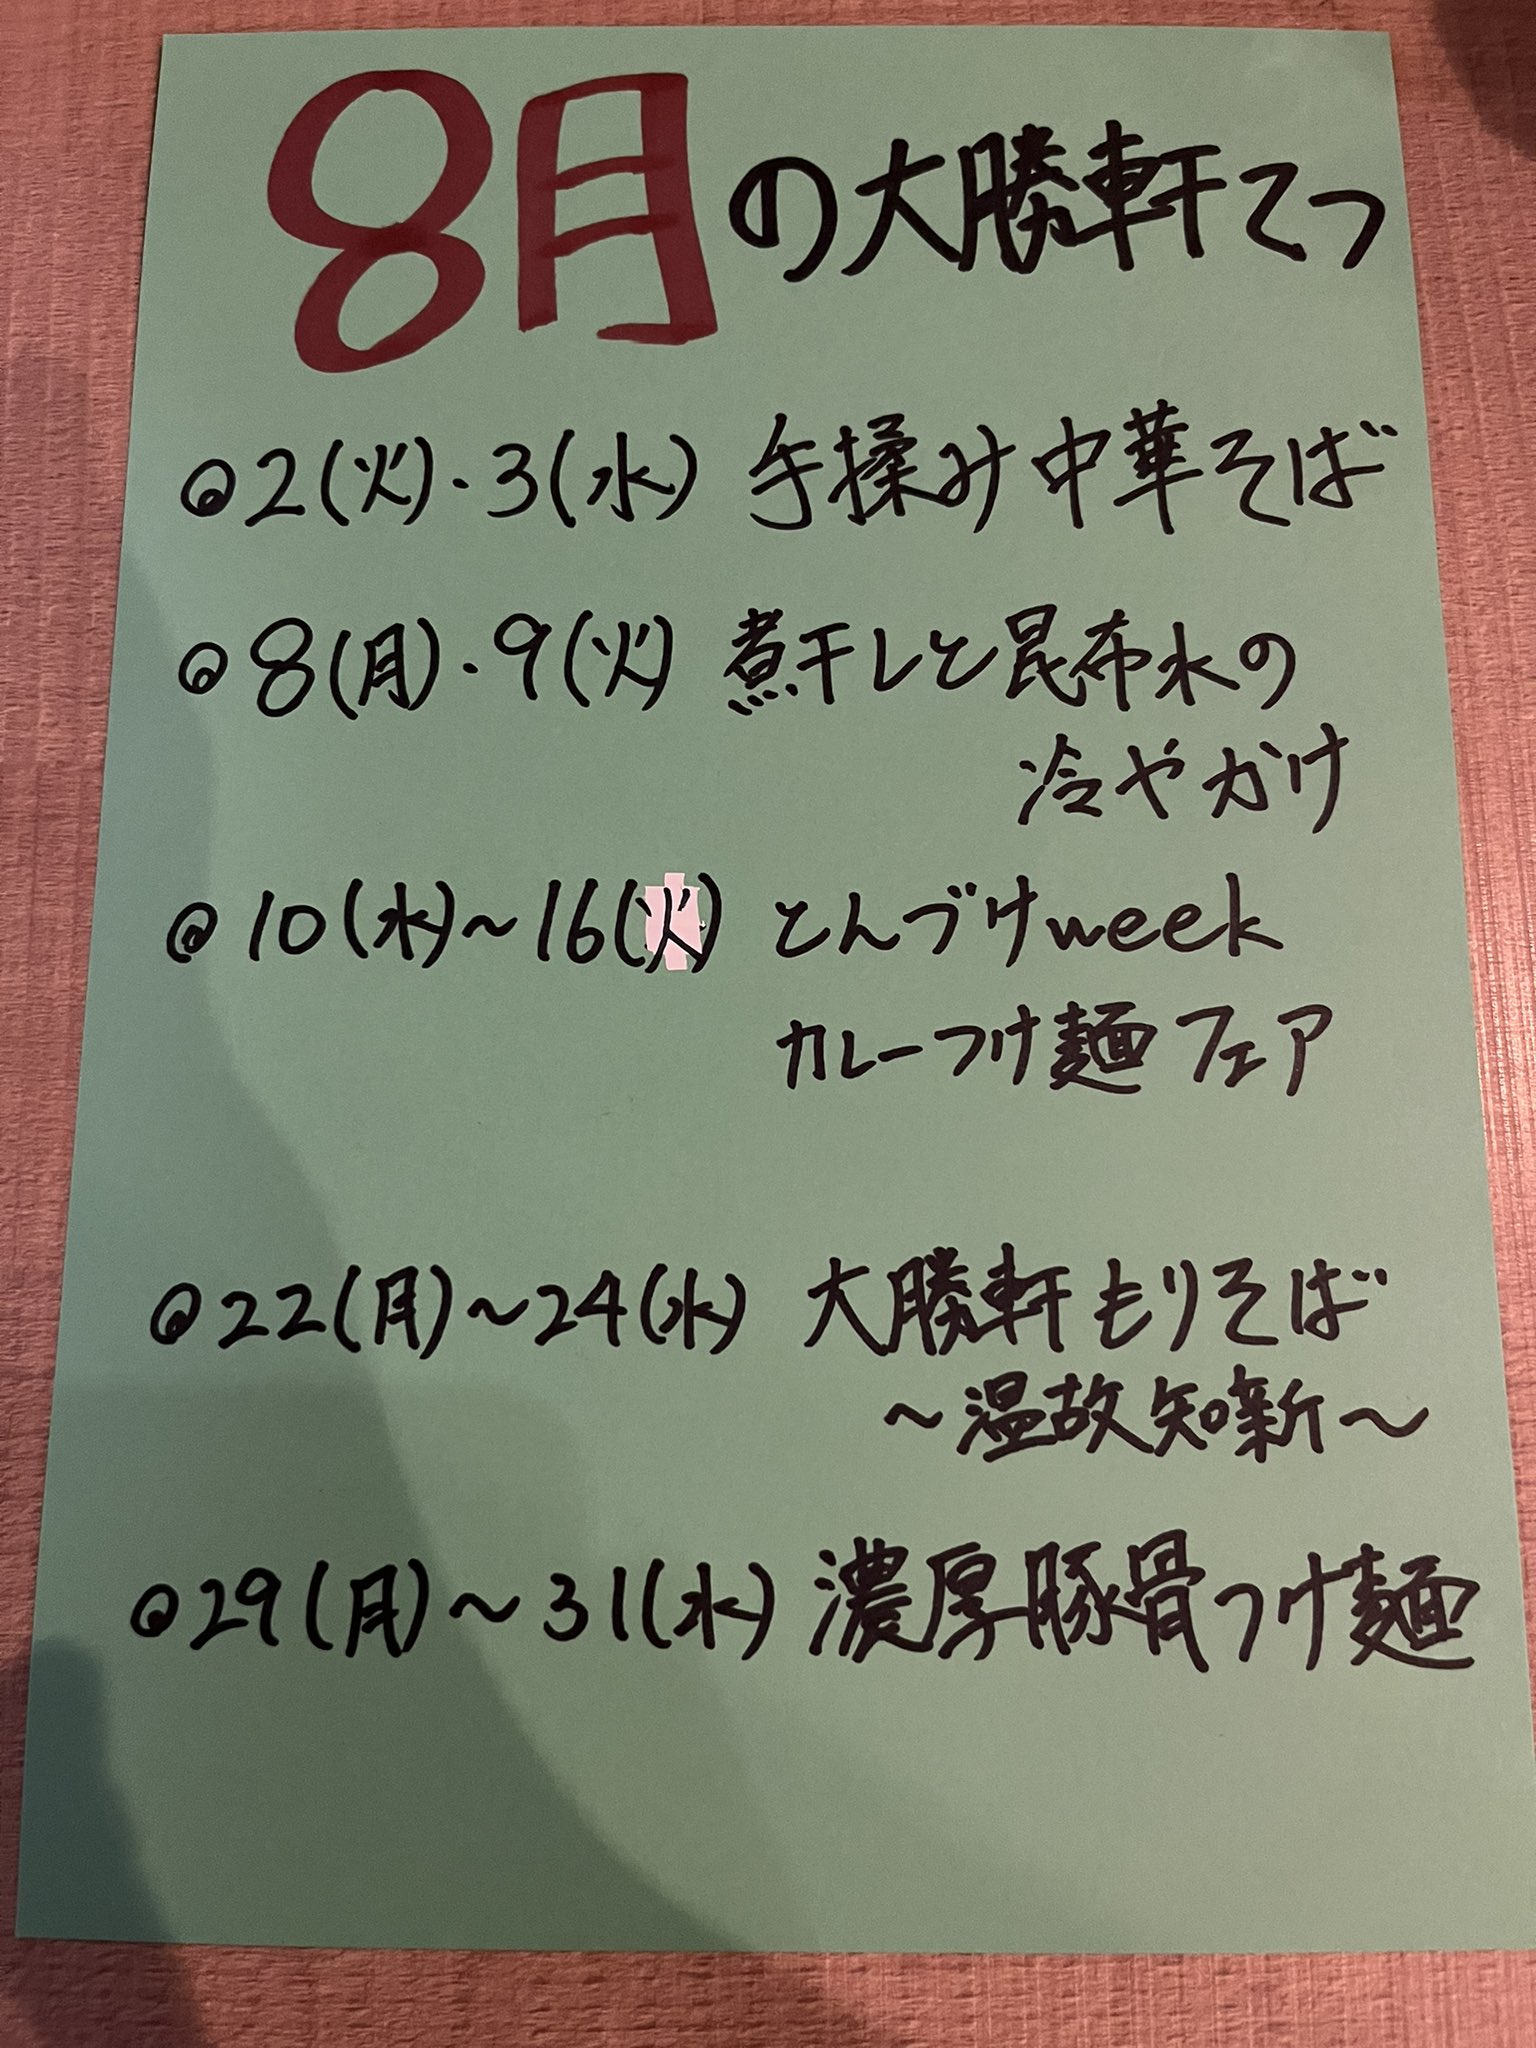 8月の大勝軒てつ
◎2(火)・3(水) 手揉み中華そば
◎8(月)・9(火) 煮干しと昆布水の
冷やかけ
◎10(水)~16(火) とんづけweek
カレーつけ麺フェア
◎22(月)~24(水) 大勝軒もりそば
~温故知新~
◎29(月)~31(水) 濃厚豚骨つけ麺